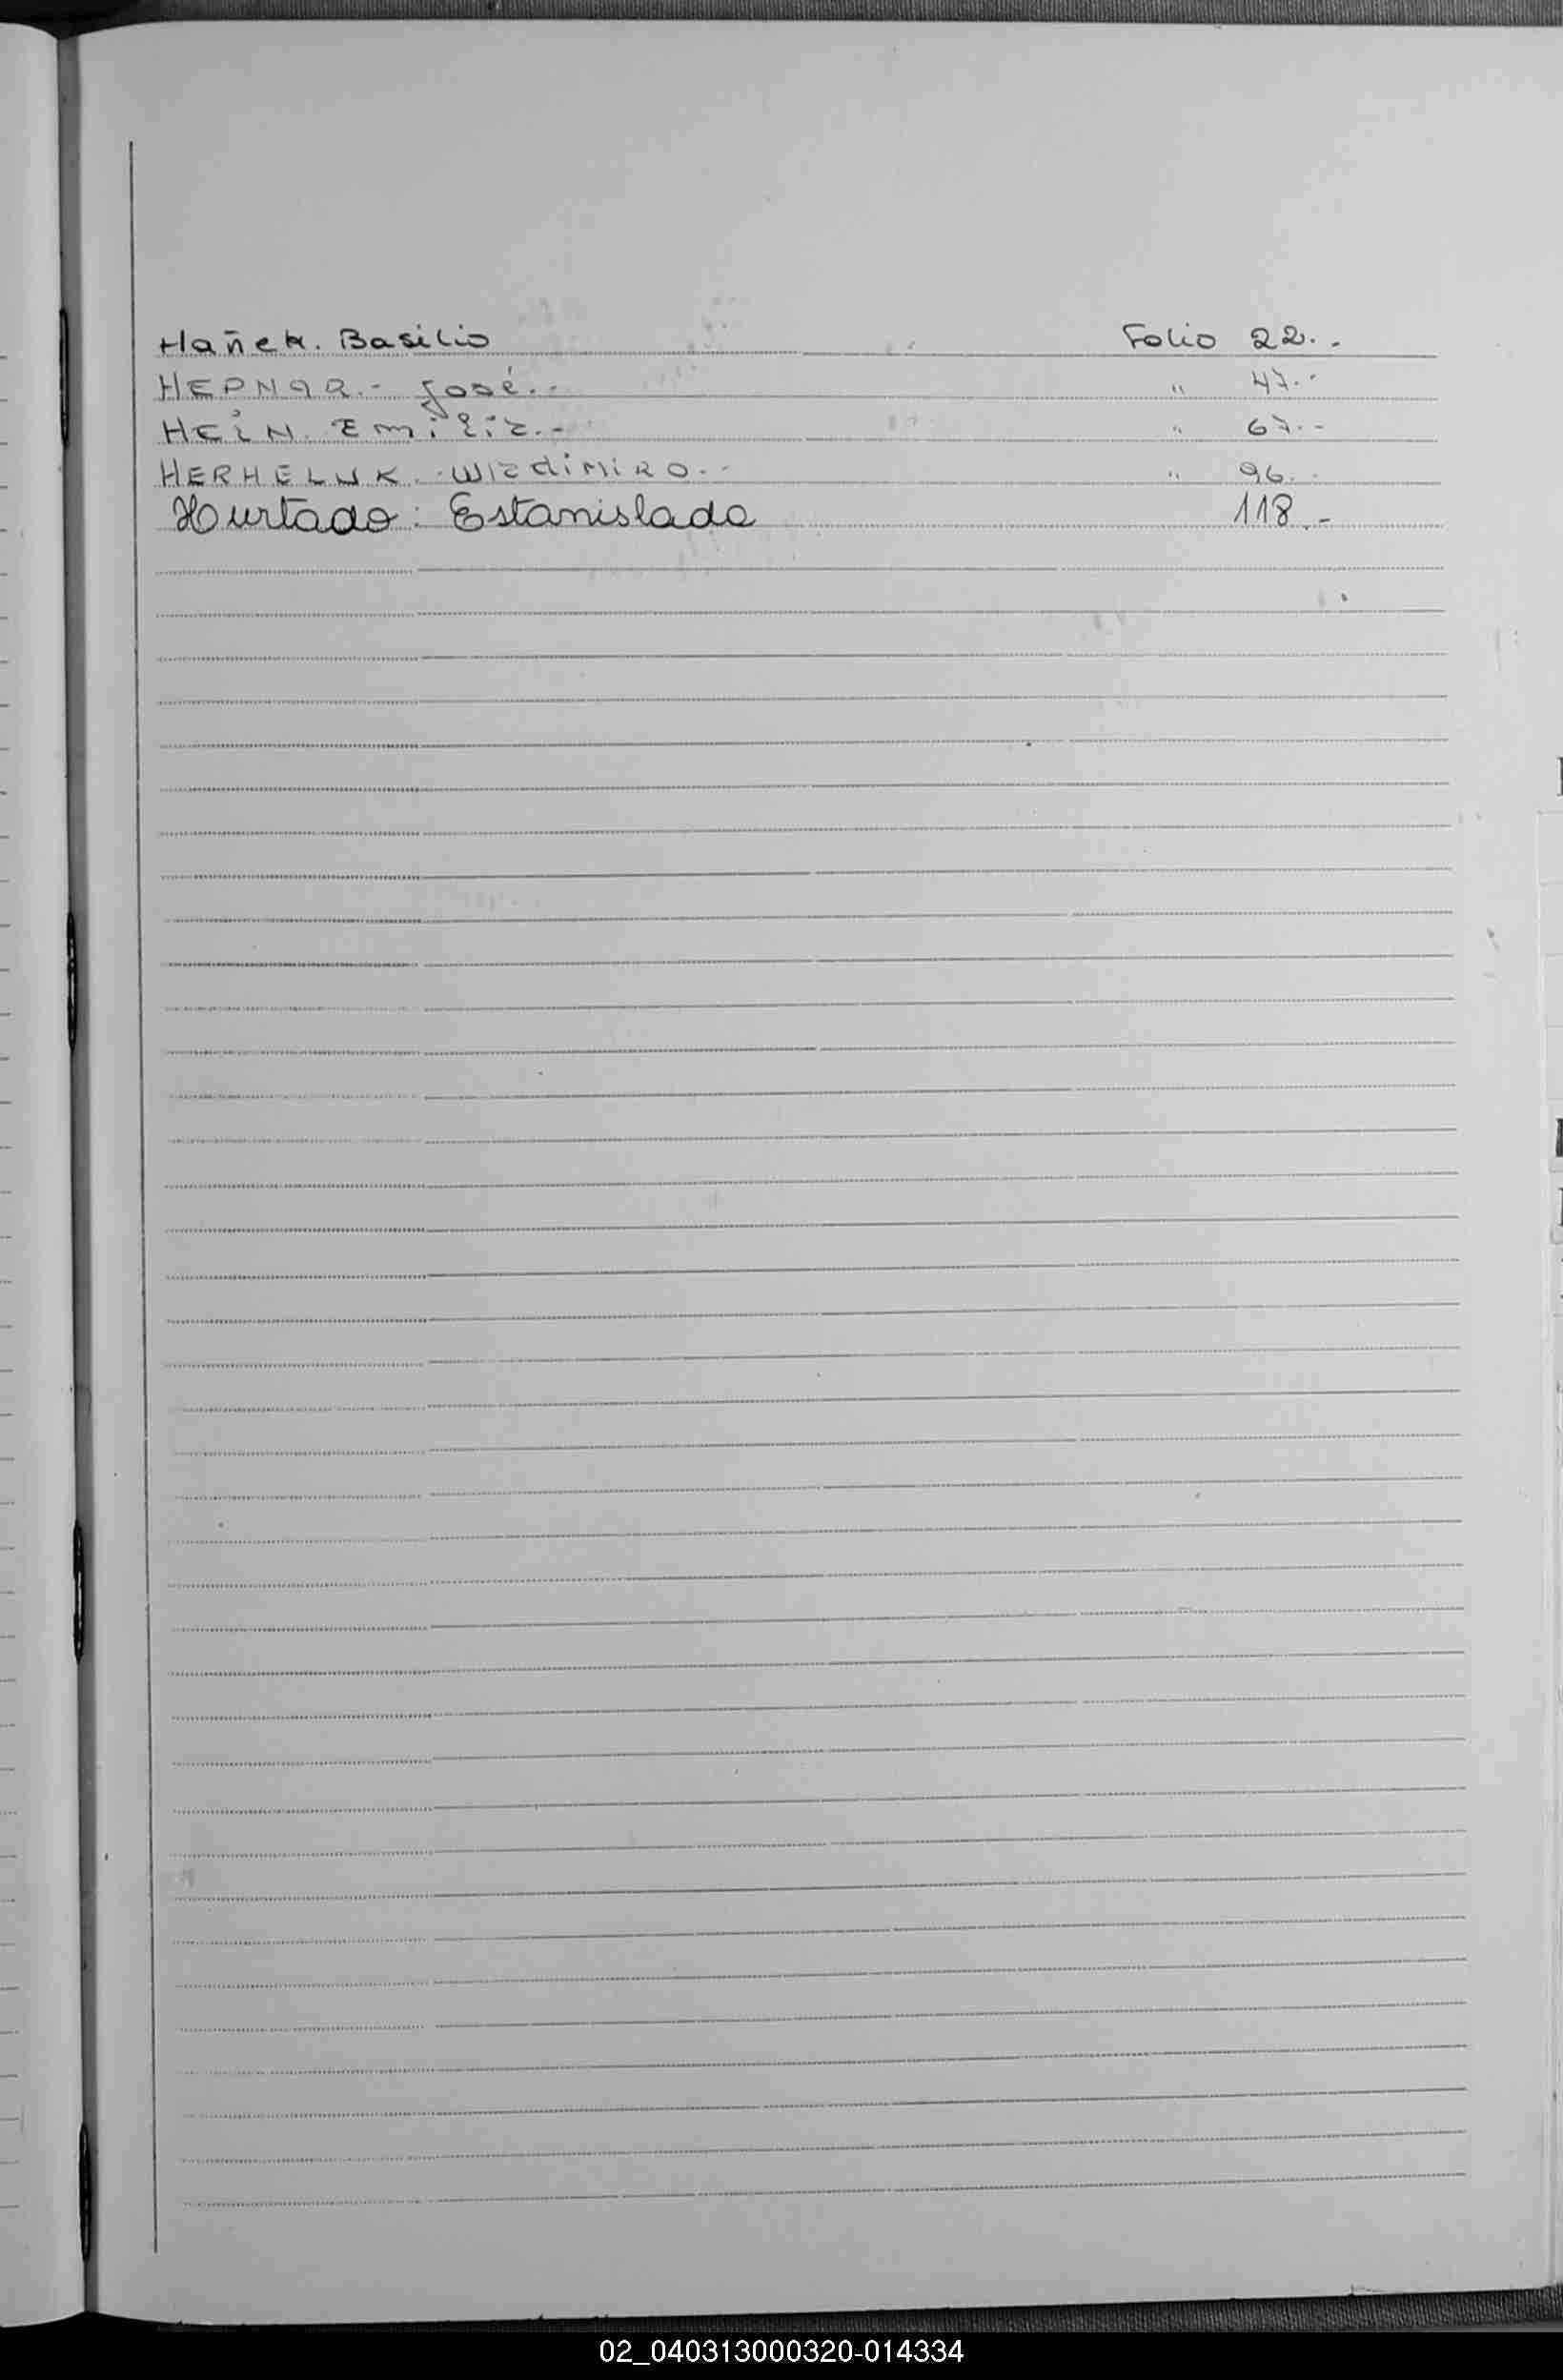 Hañek. Basilio Folio 22..
HEPNAR.- José.- " 47.-
HEiN. Emilia.- " 67.-
HERHELUK.- WladiMiRO.- " 96.-
Hurtado: Estanislada 118.-
02_040313000320-014334